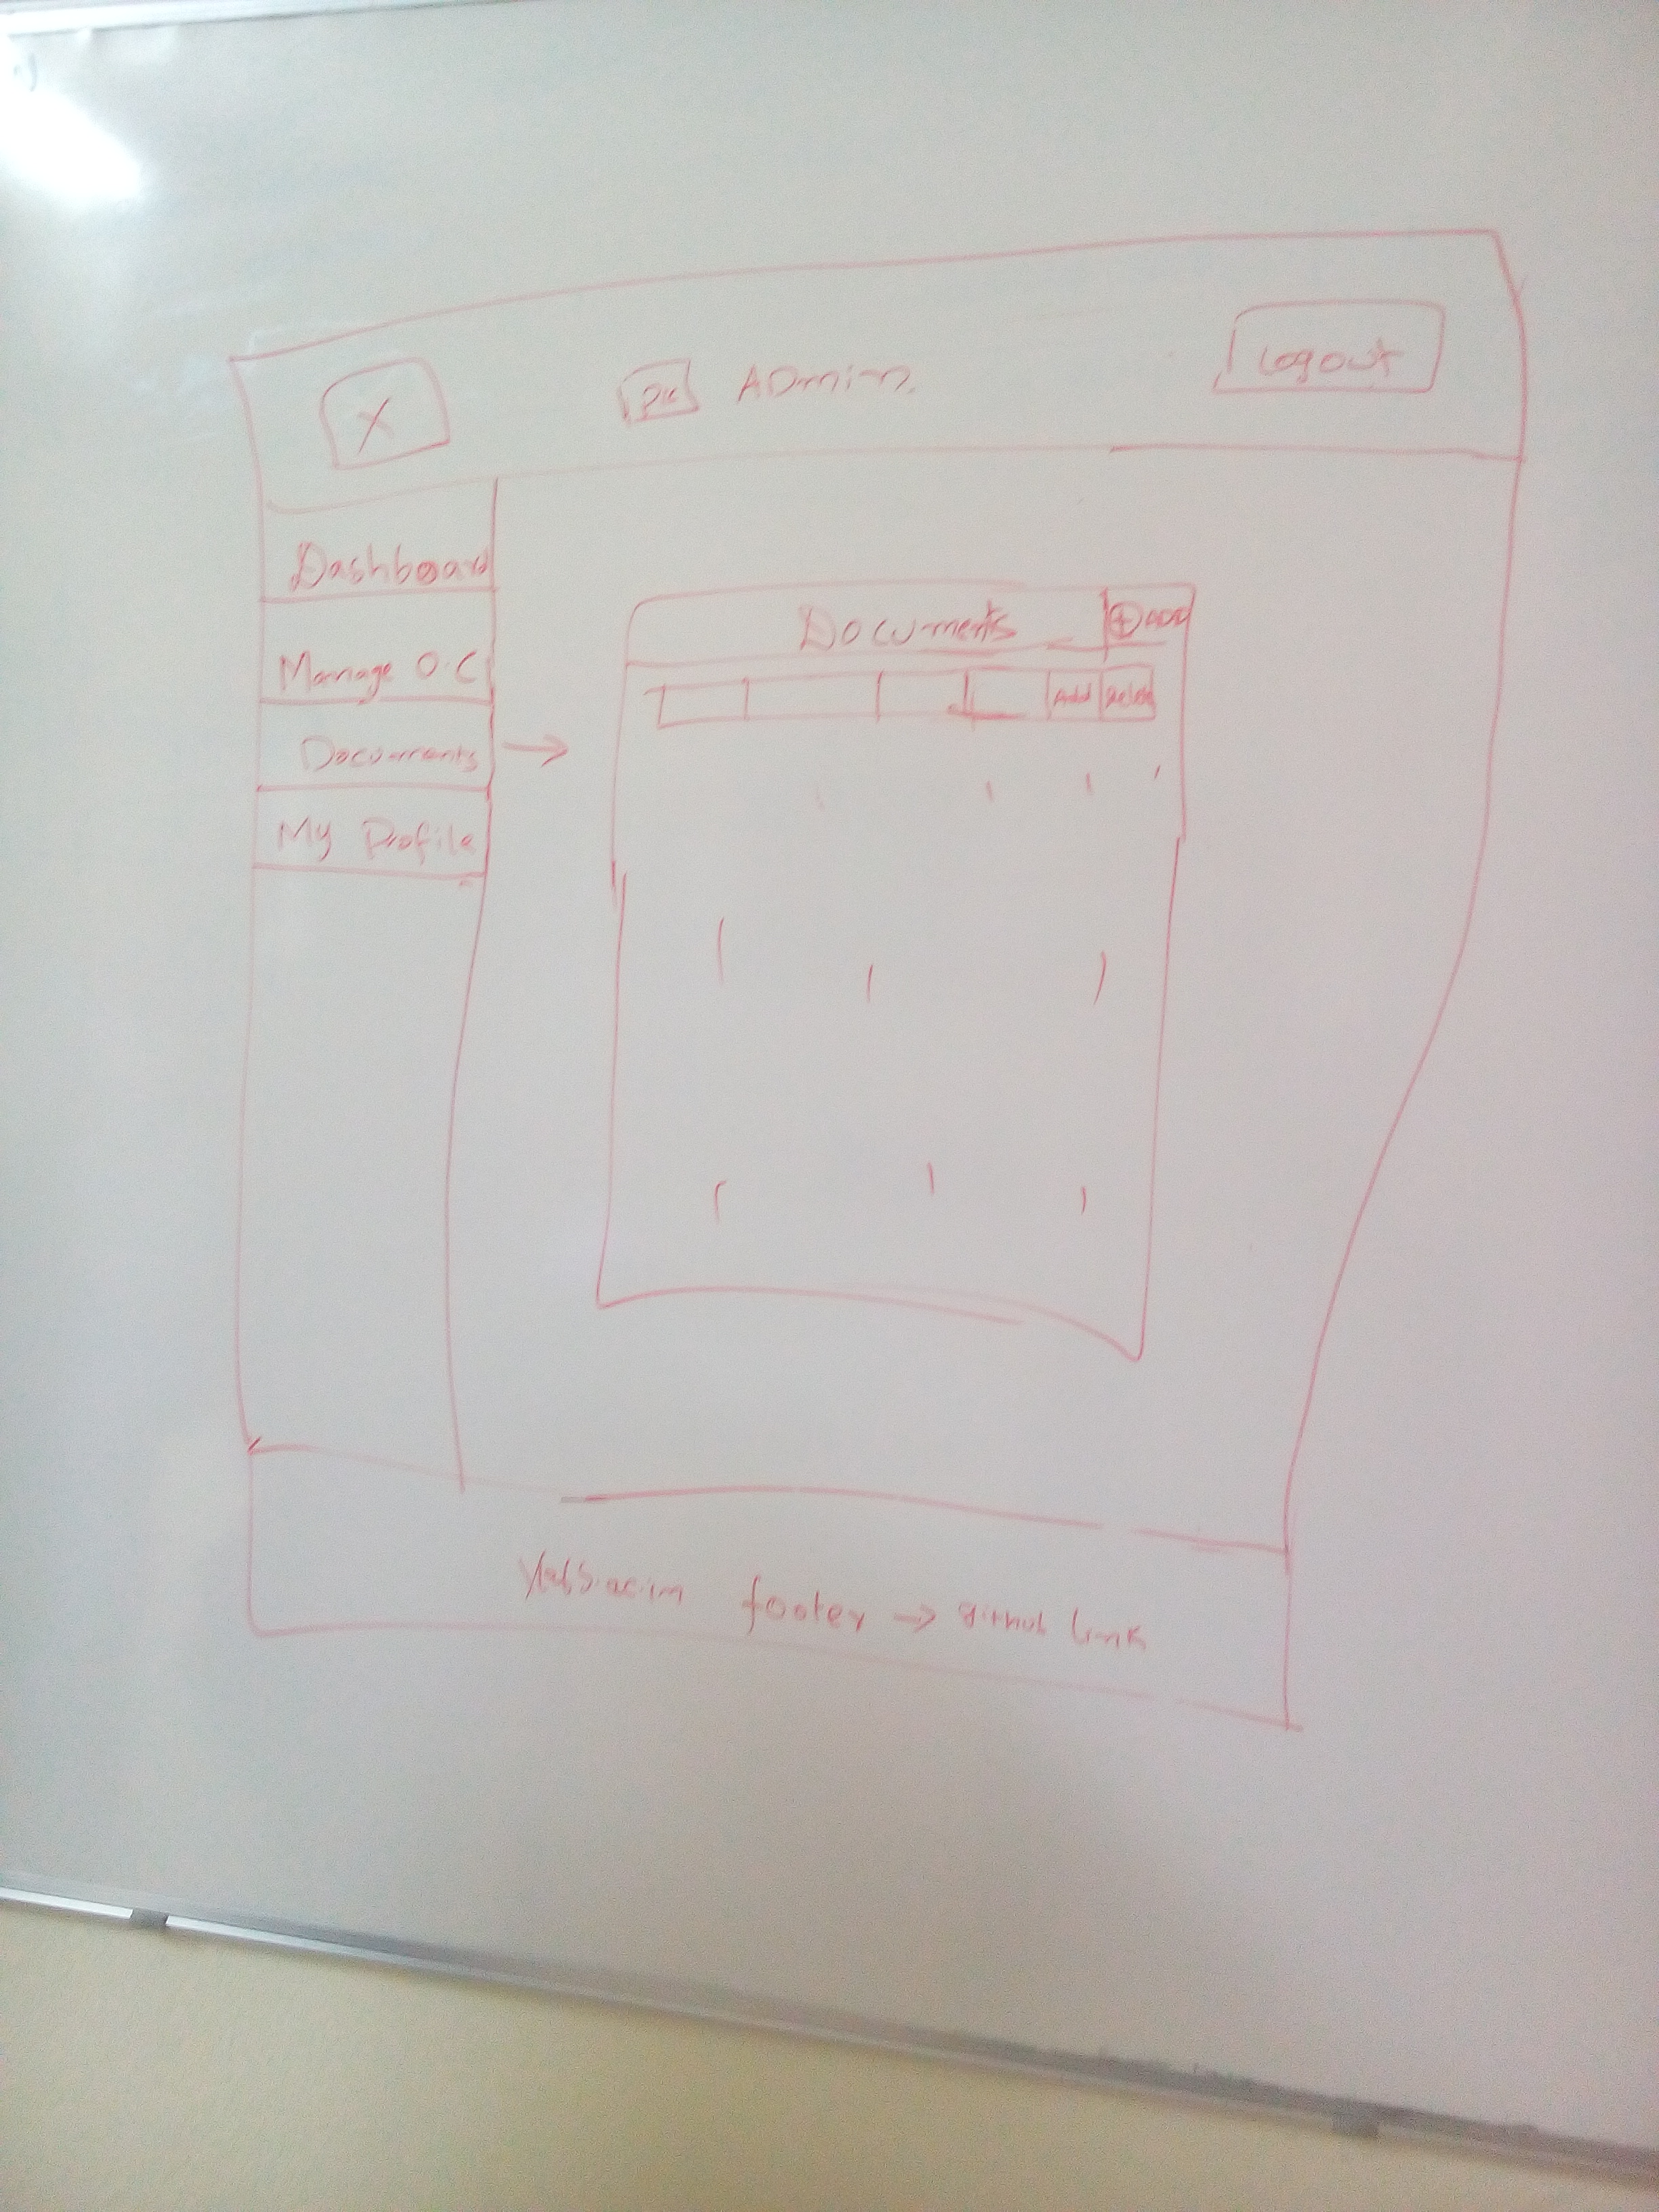 X
Pic ADmin
Logout
Dashboard
Manage O.C
Documents
My Profile
Documents
Add
Add Delete
footer → github link